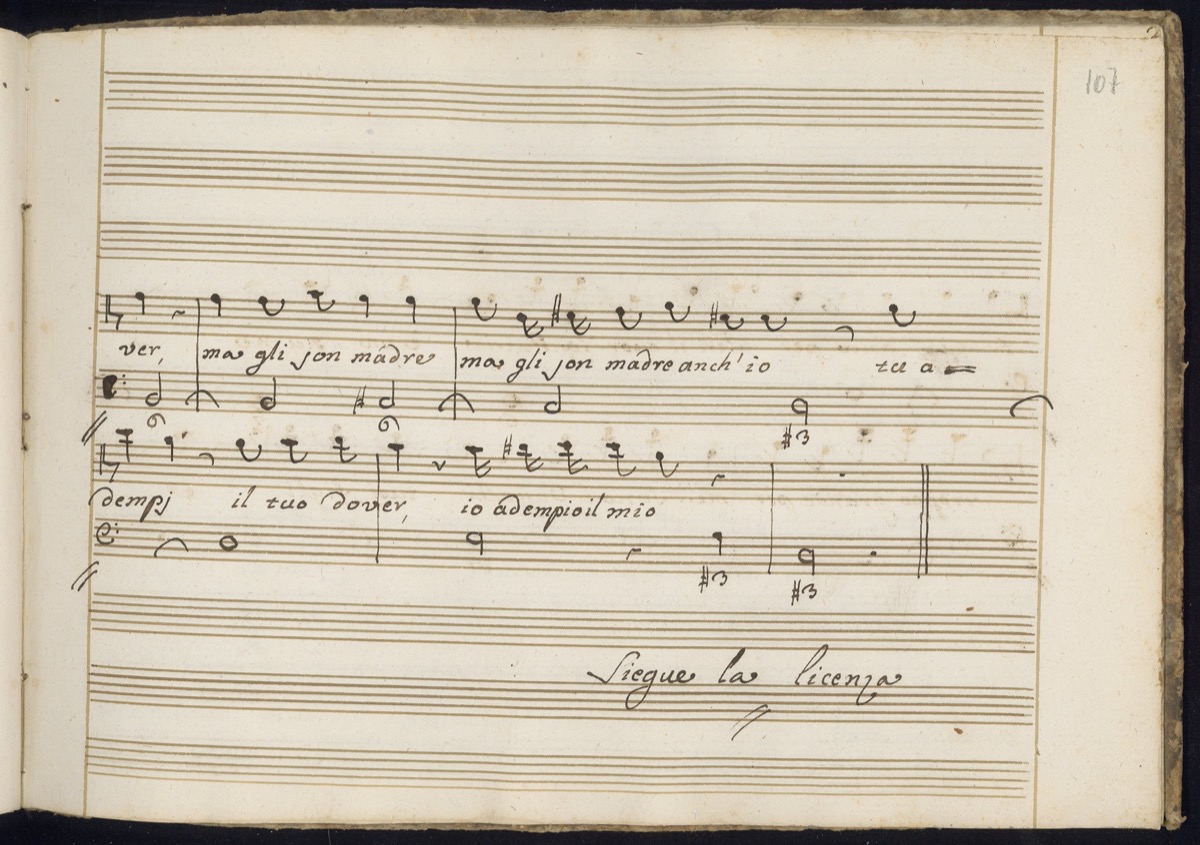 107
ver, ma gli son madre ma gli son madre anch' io tu a=
6 6 #3
dempj il tuo dover, io adempio il mio
#3 #3
Siegue la licenza